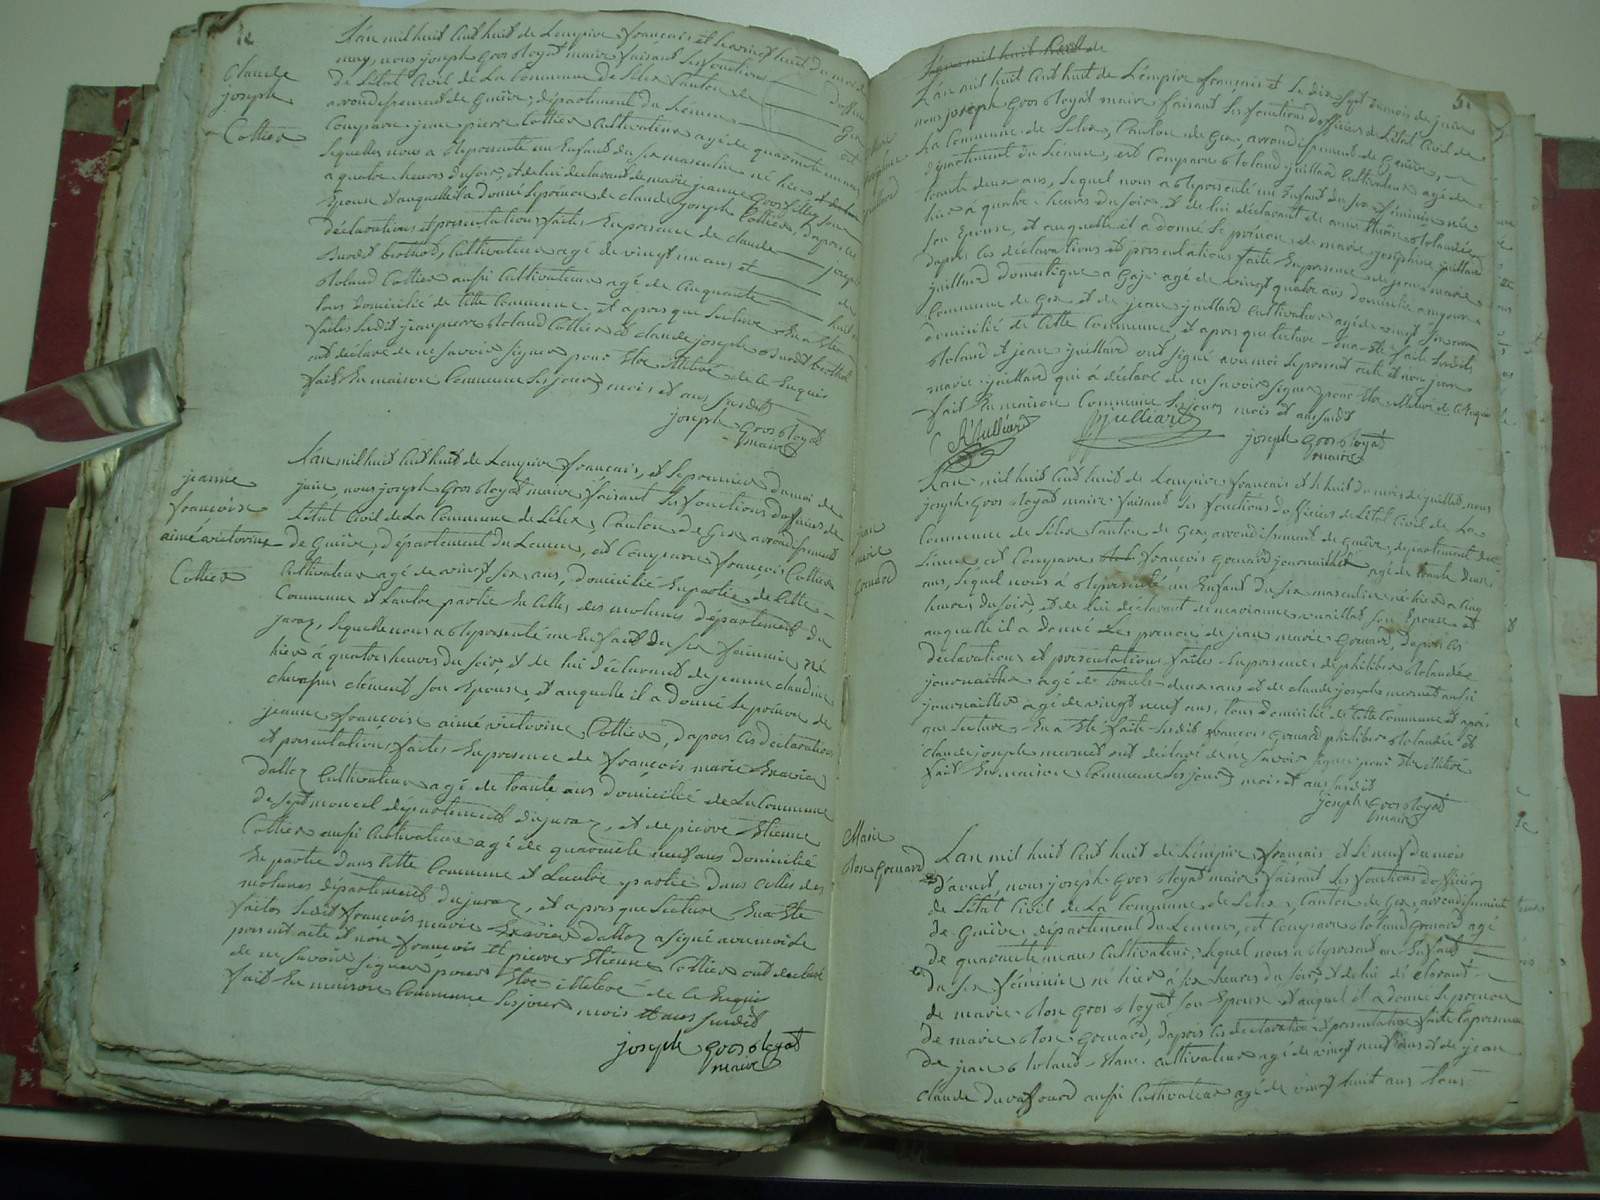 Claude
joseph
Cottier
L'an mil huit Cent huit de L'empire français et le vingt huit du mois de
may, nous joseph Gros Royat maire faisant les fonctions d'officier
de L'état Civil de La Commune de Lelex Canton de Gex
arrondissement de Genève, département du Léman est
Comparu jean pierre Cottier Cultivateur agé de quarante un ans
lequel nous a représenté un Enfant du sexe masculin né hier
a quatre heures du soir, et de lui déclarant de marie jeanne Gros son
Epouse et auquel il a donné le prénom de claude joseph Cottier, d'apres les
déclarations et presentations faites En presence de claude joseph
cultivateur agé de vingt un ans et de
Roland Cottier aussi Cultivateur agé de Cinquante huit
tous domicilié de Cette Commune, et apres que Lecture En a Eté
faites ledit jean pierre Roland Cottier et claude joseph
ont déclaré de ne savoir signer pour Etre illitéré de le Enquis
fait En maison Commune les jour mois et ans susdits
joseph gros Royat
maire
jeanne
françoise
aimé victorine
Cottier
L'an mil huit Cent huit de L'empire français, et le premier du moi de
juin, nous joseph Gros Royat maire faisant les fonctions d'officier de
L'état Civil de La Commune de Lelex, Canton de Gex arrondissement
de Genève, département du Leman, est Comparu françois Cottier
Cultivateur agé de vingt six ans, domicilié En partie de Cette
Commune et L'autre partie En Celles des molunes département du
jura, lequelle nous a représenté un Enfant du sexe féminin né
hier à quatre heures du soir, et de lui déclarant de jeanne claudine
clément son Epouse, et auquelle il a donné le prénom de
jeanne françoise aimé victorine Cottier, d'apres les déclarations
et presentations faites En presence de françois marie Exavier
dalloz Cultivateur agé de trante ans domicilié de La Commune
de Septmoncel département du jura, et de pierre Etienne
Cottier aussi Cultivateur agé de quarante neuf ans domicilié
En partie dans Cette Commune et L'autre partie dans Celles des
molunes département du jura, et apres que Lecture En a Eté
faites ledit françois marie Exavier dalloz a signé avec moi le
present acte et non françois et pierre Etienne Cottier ont déclaré
de ne savoir signer pour Etre illitéré de le Enquis
fait En maison Commune les jour mois et ans susdit
joseph gros Royat
maire
L'an mil huit Cent huit de L'empire français et le dix sept du mois de juin
nous joseph Gros Royat maire faisant les fonctions d'officier de L'état Civil de
La Commune de Lelex, Canton de Gex, arrondissement de Genève,
département du Léman, est Comparu Roland juillard Cultivateur agé de
trante deux ans, lequel nous a représenté un Enfant du sexe féminin née
hier à quatre heures du soir et de lui déclarant de anne
son Epouse, et auquelle il a donné le prénom de marie josephine juillard
d'apres les déclarations et presentations faite En presence de jean marie
juillard domestique a gage agé de vingt quatre ans domicilié
Commune de Gex et de jean juillard Cultivateur agé de vingt
domicilié de Cette Commune, et apres que Lecture En a Eté faite
Roland et jean juillard ont signé avec moi le present acte et non jean
marie juillard qui a déclaré de ne savoir signer pour Etre illitéré de le Enquis
fait En maison Commune les jour mois et an susdit
R juilliard
J juilliard
joseph gros Royat
maire
jean
marie
Grenard
L'an mil huit Cent huit de L'empire français et le huit du mois de juillet, nous
joseph Gros Royat maire faisant les fonctions d'officier de L'état Civil de La
Commune de Lelex Canton de Gex, arrondissement de Genève, département du
Léman, est Comparu françois Grenard journaillier agé de trante deux
ans, lequel nous à représenté un Enfant du sexe masculin né hier a Cinq
heures du soir, et de lui déclarant de marianne son Epouse et
auquelle il a donné Le prénom de jean marie Grenard, d'apres les
déclarations et presentations faites En presence de philiber
journaillier agé de trante deux ans et de claude joseph mermet aussi
journaillier agé de vingt neuf ans, tous domicilié de Cette Commune et apres
que Lecture En a Eté faite lesdit françois Grenard philiber et
claude joseph mermet ont déclaré de ne savoir signer pour Etre illitéré
fait En maison Commune les jour mois et an susdit
joseph gros Royat
maire
Marie
Rose Grenard
L'an mil huit Cent huit de L'empire français et le neuf du mois
d'aout, nous joseph Gros Royat maire faisant les fonctions d'officier
de L'état Civil de La Commune de Lelex, Canton de Gex, arrondissement
de Genève, département du Leman, est Comparu Roland Grenard agé
de quarante un ans Cultivateur, lequel nous a représanté un Enfant
du sexe féminin né hier à six heures du soir, et de lui déclarant
de marie Rose Gros Royat son Epouse et auquel il a donné le prénom
de marie Rose Grenard, d'apres les declaration et presentation faite En presence
de jean Roland blanc cultivateur agé de vingt neuf ans et de jean
claude duraffourd aussi Cultivateur agé de vingt huit ans tous